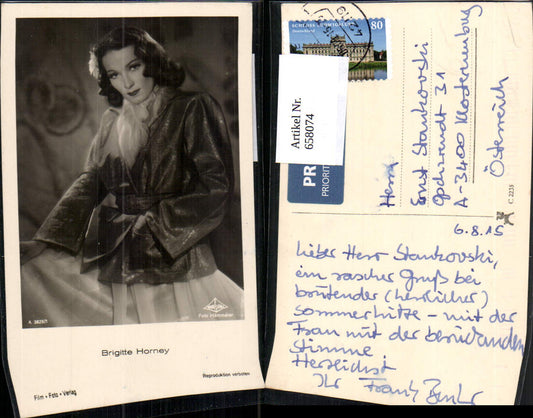 A 3829/1
UFA
Foto Hämmerer
Brigitte Horney
Reproduktion verboten
Film • Foto • Verlag
SCHLOSS LUDWIGSLUST
Deutschland
80
Artikel Nr.
658074
PRIORIT
Herrn
Ernst Stankovski
31
A-3400 Klosterneuburg
Österreich
C 2235
6.8.15
Lieber Herr Stankovski,
ein rascher Gruß bei
brütender (herrlicher)
Sommerhitze – mit der
Frau mit der berückenden
Stimme
Herzlichst
Ihr Frank